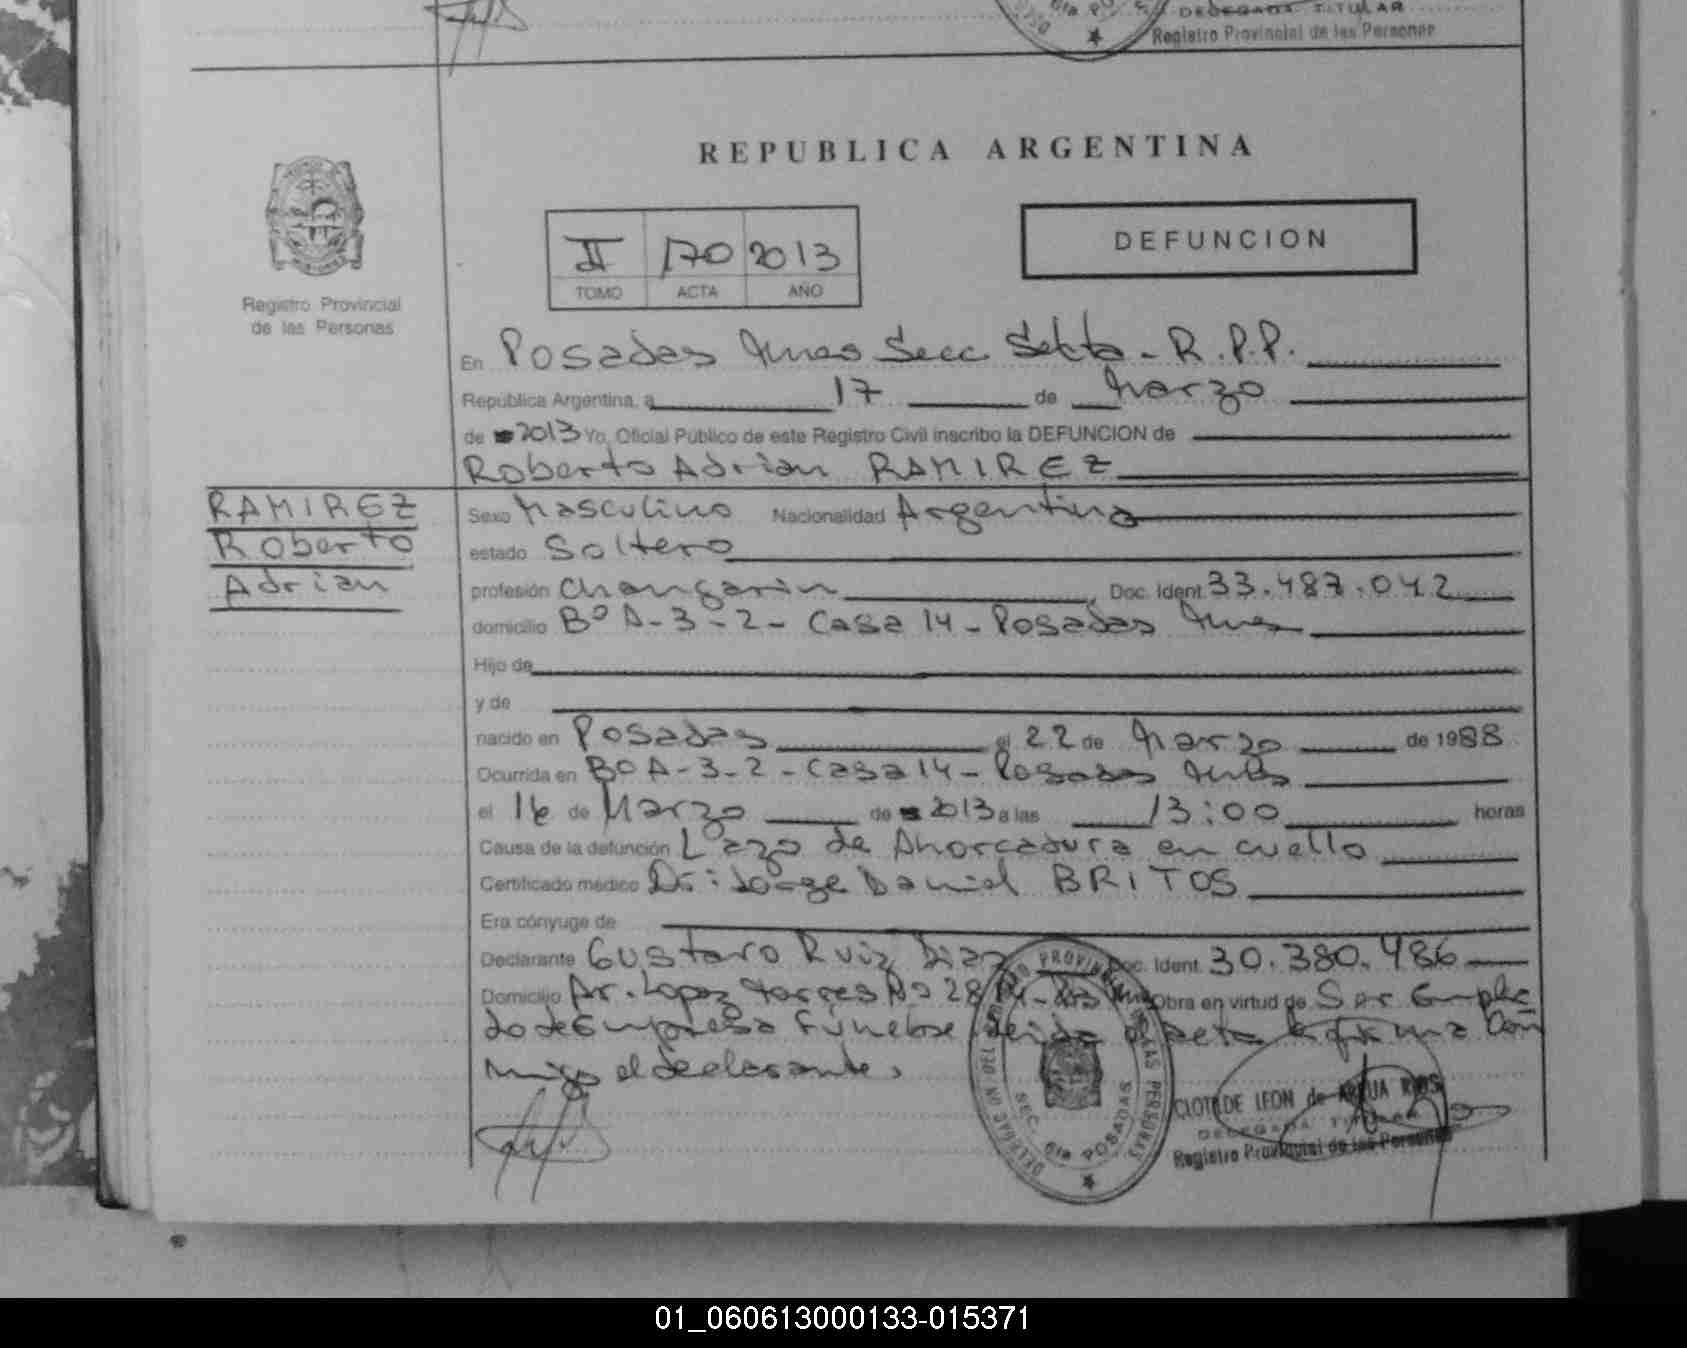 DELEGADA TITULAR
Registro Provincial de las Personas
REPUBLICA ARGENTINA
II 170 2013
TOMO ACTA AÑO
DEFUNCION
Registro Provincial
de las Personas
En Posadas Mnes Secc Sexta - R.P.P.
Republica Argentina, a 17 de Marzo
de 2013 Yo, Oficial Público de este Registro Civil inscribo la DEFUNCION de
Roberto Adrian RAMIREZ
RAMIREZ
Roberto
Adrian
Sexo Masculino Nacionalidad Argentina
estado Soltero
profesión Changarin Doc. Ident. 33.487.042
domicilio Bº A-3-2- Casa 14 - Posadas Mnes
Hijo de
y de
nacido en Posadas el 22 de Marzo de 1988
Ocurrida en Bº A-3-2 - Casa 14 - Posadas Mnes
el 16 de Marzo de 2013 a las 13:00 horas
Causa de la defunción Lazo de Ahorcadura en cuello
Certificado médico Dr: Jorge Daniel BRITOS
Era cónyuge de
Declarante Gustavo Ruiz Diaz Doc. Ident. 30.380.486
Domicilio Av. Lopez Torres Nº 28 Obra en virtud de Ser Emplea
do de Empresa Fúnebre leida el acta la firma Con
migo el declarante,
SEC. 6ta POSADAS
CLOTILDE LEON de
DELEGADA TITULAR
Registro Provincial de las Personas
01_060613000133-015371